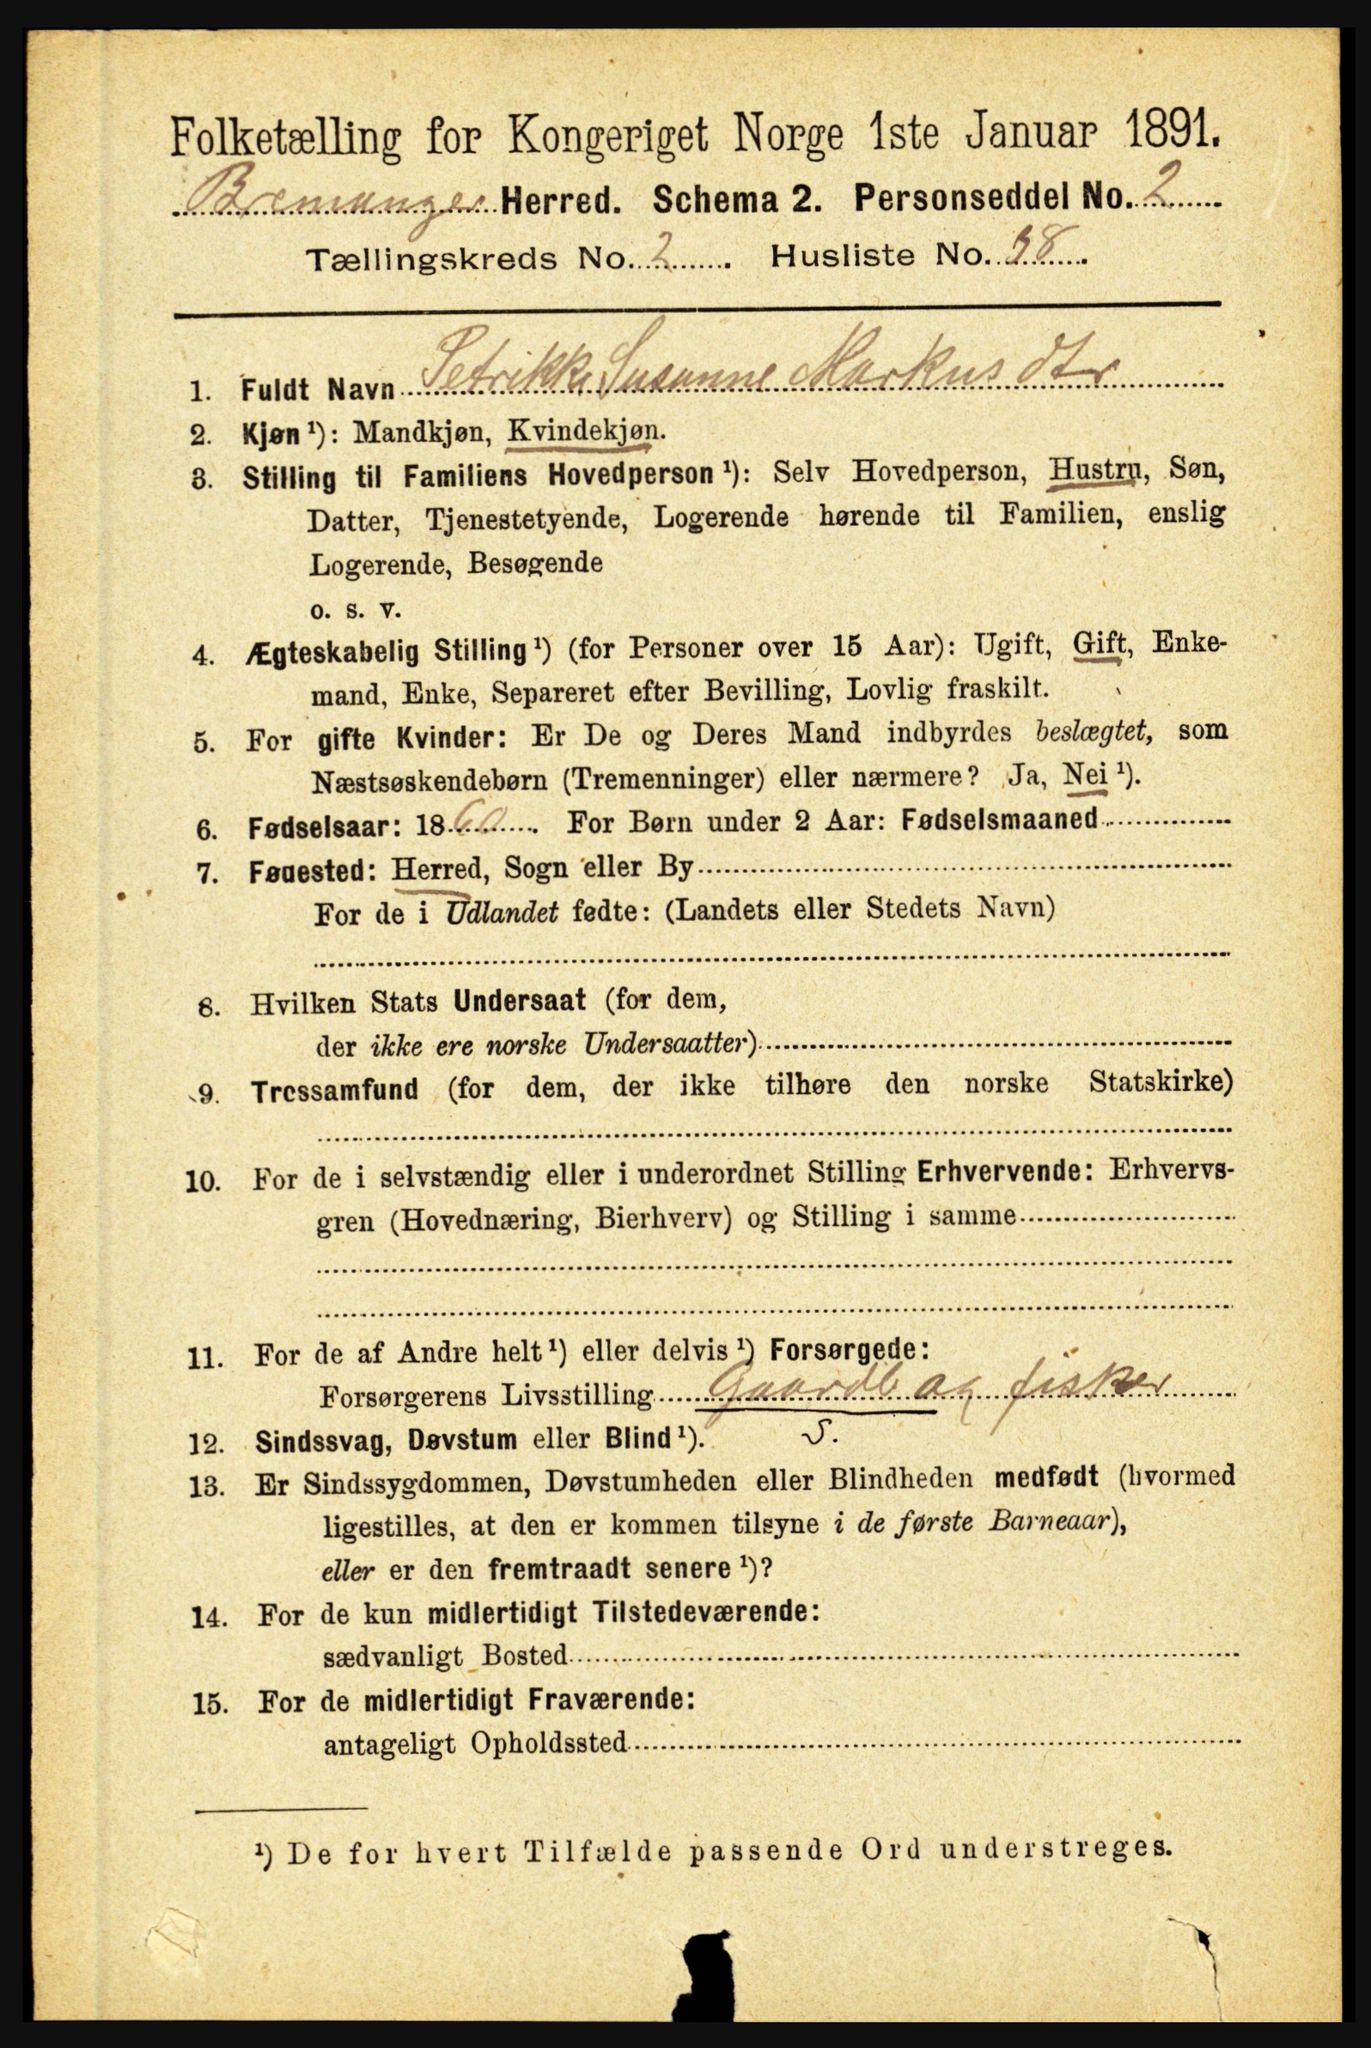 Folketælling for Kongeriget Norge 1ste Januar 1891.
Bremanger Herred. Schema 2. Personseddel No. 2
Tællingskreds No. 2. Husliste No. 38.
1. Fuldt Navn Petrikke Susanne Markusdtr
2. Kjøn¹): Mandkjøn, Kvindekjøn.
3. Stilling til Familiens Hovedperson¹): Selv Hovedperson, Hustru, Søn,
Datter, Tjenestetyende, Logerende hørende til Familien, enslig
Logerende, Besøgende
o. s. v.
4. Ægteskabelig Stilling¹) (for Personer over 15 Aar): Ugift, Gift, Enke-
mand, Enke, Separeret efter Bevilling, Lovlig fraskilt.
5. For gifte Kvinder: Er De og Deres Mand indbyrdes beslægtet, som
Næstsøskendebørn (Tremenninger) eller nærmere? Ja, Nei¹).
6. Fødselsaar: 1860. For Børn under 2 Aar: Fødselsmaaned
7. Fødested: Herred, Sogn eller By
For de i Udlandet fødte: (Landets eller Stedets Navn)
8. Hvilken Stats Undersaat (for dem,
der ikke ere norske Undersaatter)
9. Trossamfund (for dem, der ikke tilhøre den norske Statskirke)
10. For de i selvstændig eller i underordnet Stilling Erhvervende: Erhvervs-
gren (Hovednæring, Bierhverv) og Stilling i samme
11. For de af Andre helt¹) eller delvis¹) Forsørgede:
Forsørgerens Livsstilling Gaardb og fisker
12. Sindssvag, Døvstum eller Blind¹). S.
13. Er Sindssygdommen, Døvstumheden eller Blindheden medfødt (hvormed
ligestilles, at den er kommen tilsyne i de første Barneaar),
eller er den fremtraadt senere¹)?
14. For de kun midlertidigt Tilstedeværende:
sædvanligt Bosted
15. For de midlertidigt Fraværende:
antageligt Opholdssted
¹) De for hvert Tilfælde passende Ord understreges.